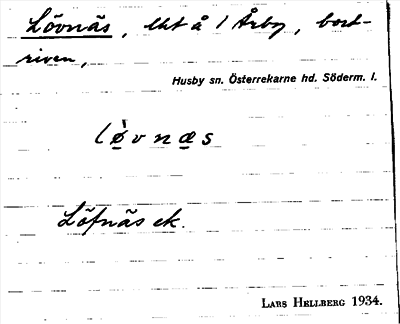 Lövnäs, lht å 1 Årby, bort-
riven,
Husby sn. Österrekarne hd. Söderm. l.
lø̀vnæs
Löfnäs ek.
LARS HELLBERG 1934.